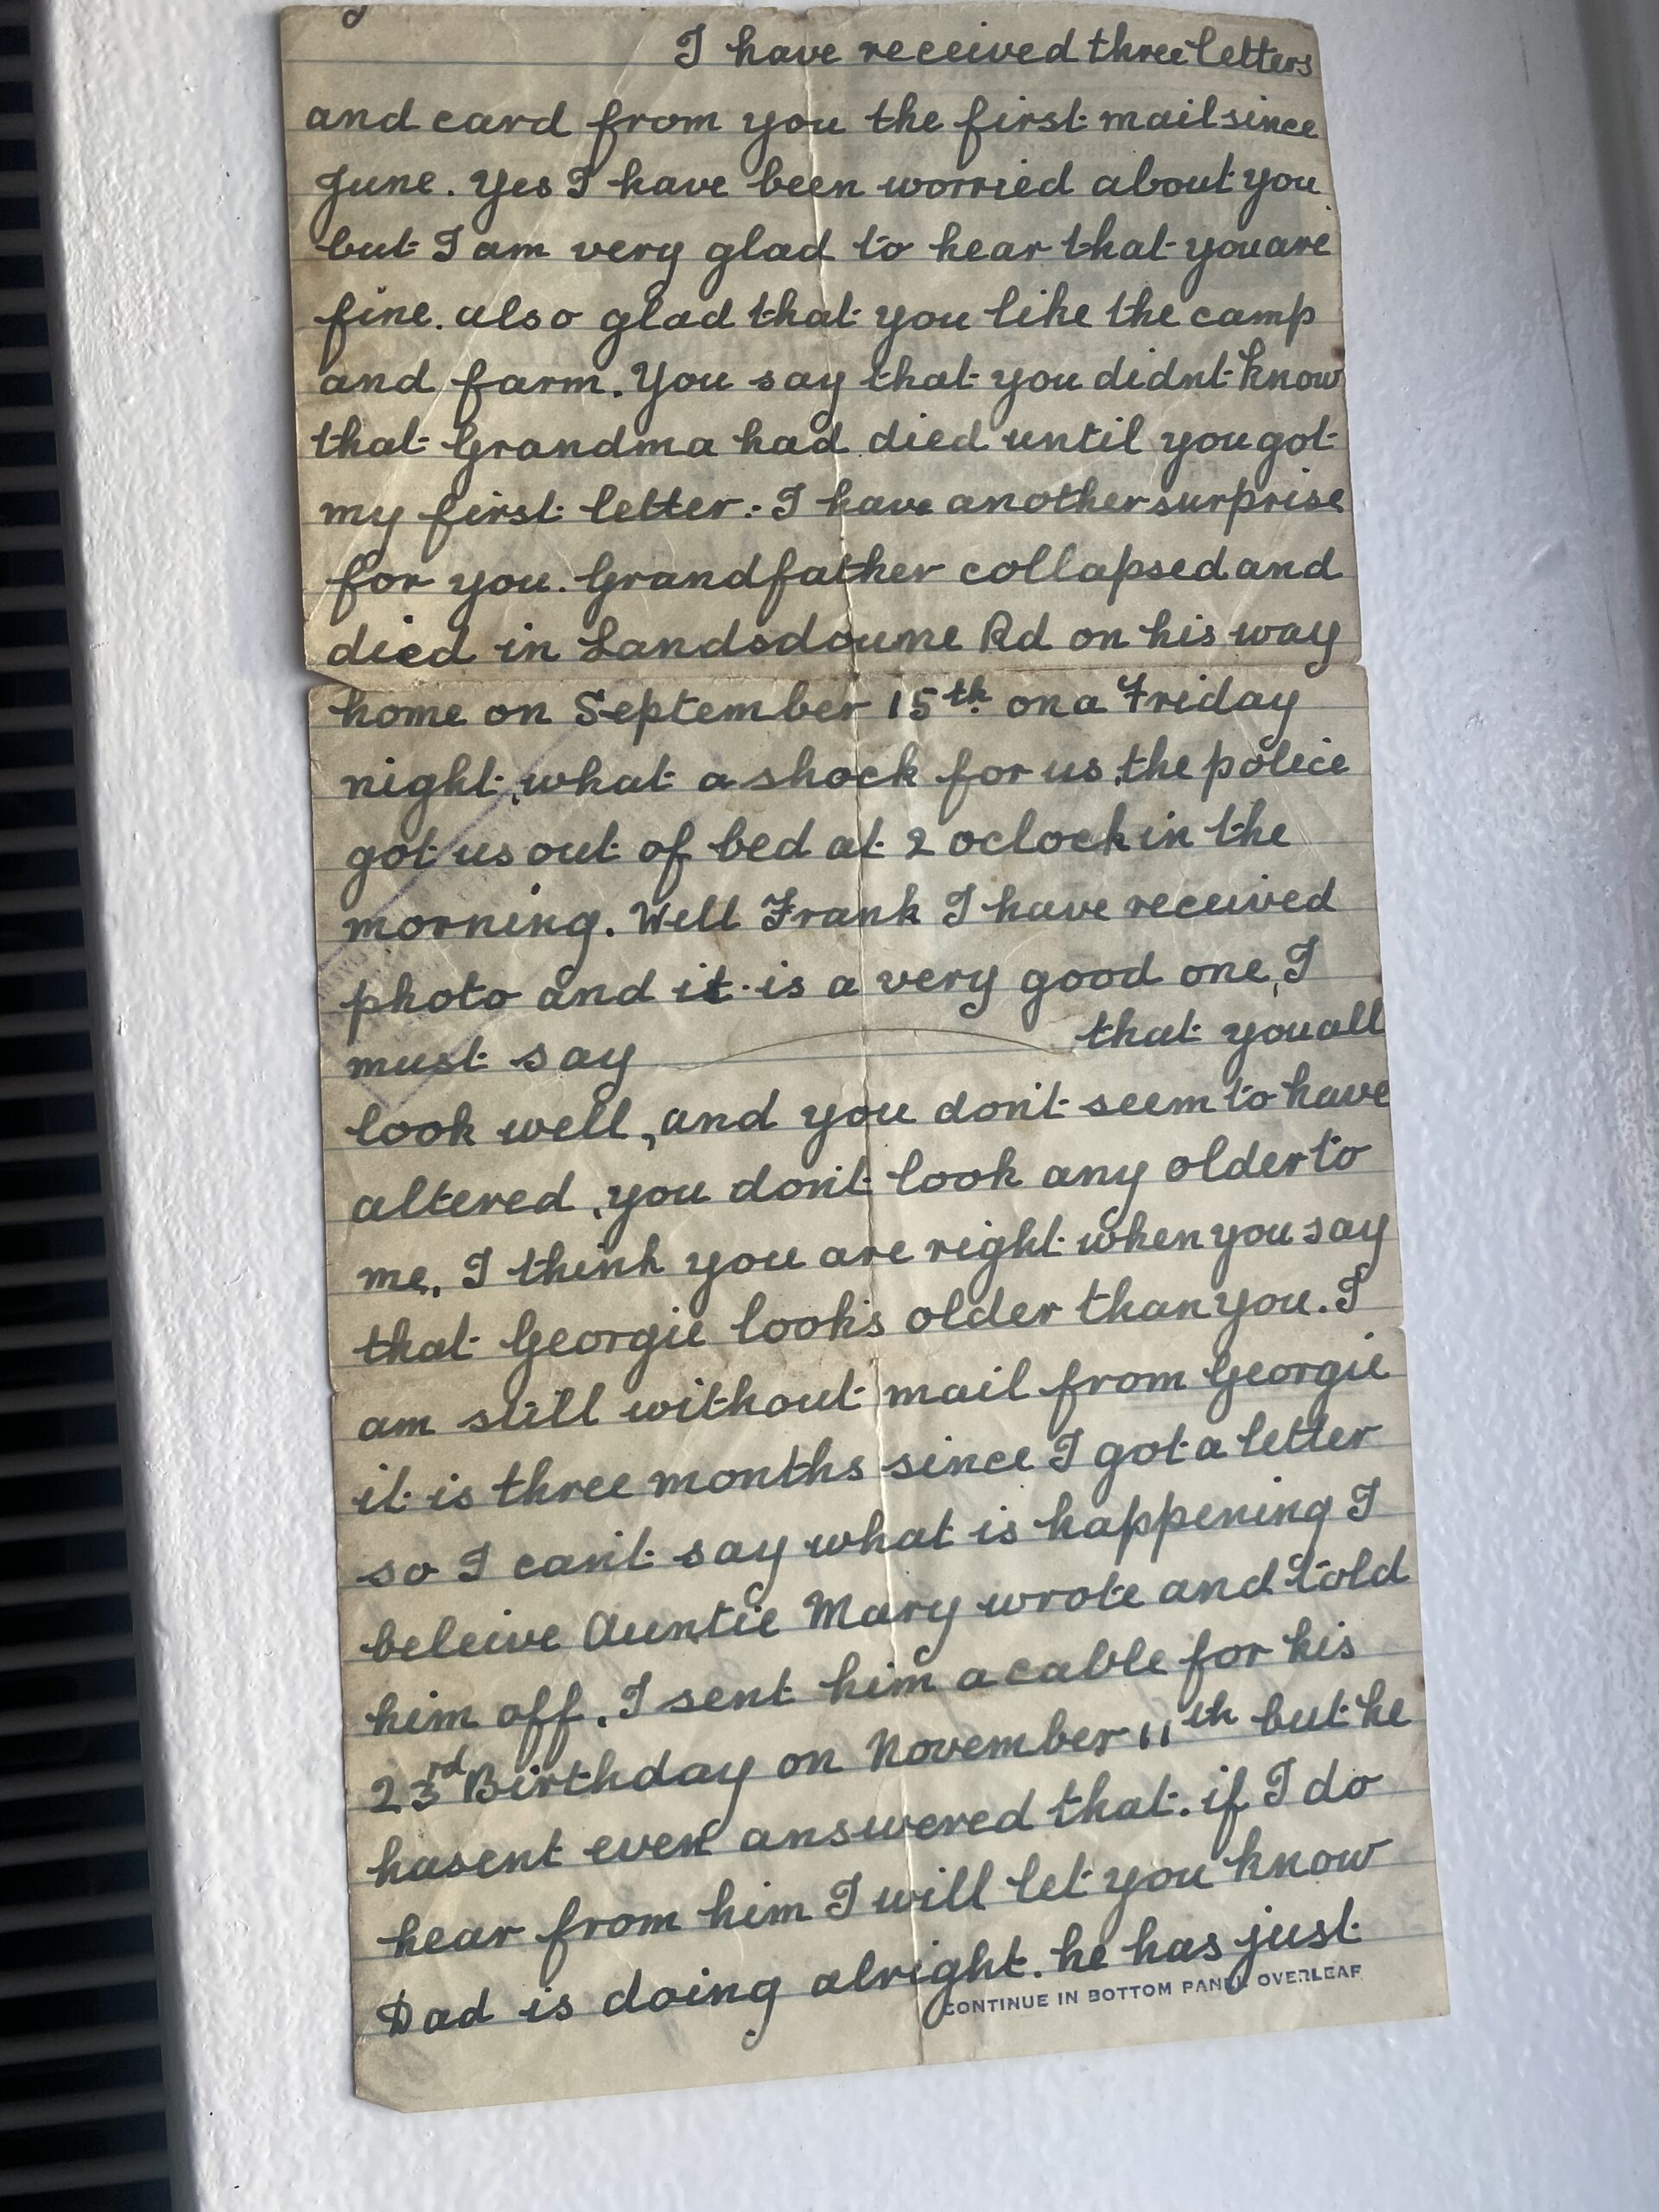 I have received three letters
and card from you the first mail since
June. Yes I have been worried about you
but I am very glad to hear that you are
fine. also glad that you like the camp
and farm. You say that you didnt know
that Grandma had died until you got
my first letter. I have another surprise
for you. Grandfather collapsed and
died in Landsdoume Rd on his way
home on September 15th on a Friday
night, what a shock for us, the police
got us out of bed at 2 oclock in the
morning. Well Frank I have received
photo and it is a very good one, I
must say that you all
look well, and you don't seem to have
altered, you don't look any older to
me, I think you are right when you say
that Georgie looks older than you. I
am still without mail from Georgie
it is three months since I got a letter
so I can't say what is happening I
beleive Auntie Mary wrote and told
him off, I sent him a cable for his
23rd Birthday on November 11th but he
hasent even answered that. if I do
hear from him I will let you know
Dad is doing alright. he has just
CONTINUE IN BOTTOM PANEL OVERLEAF